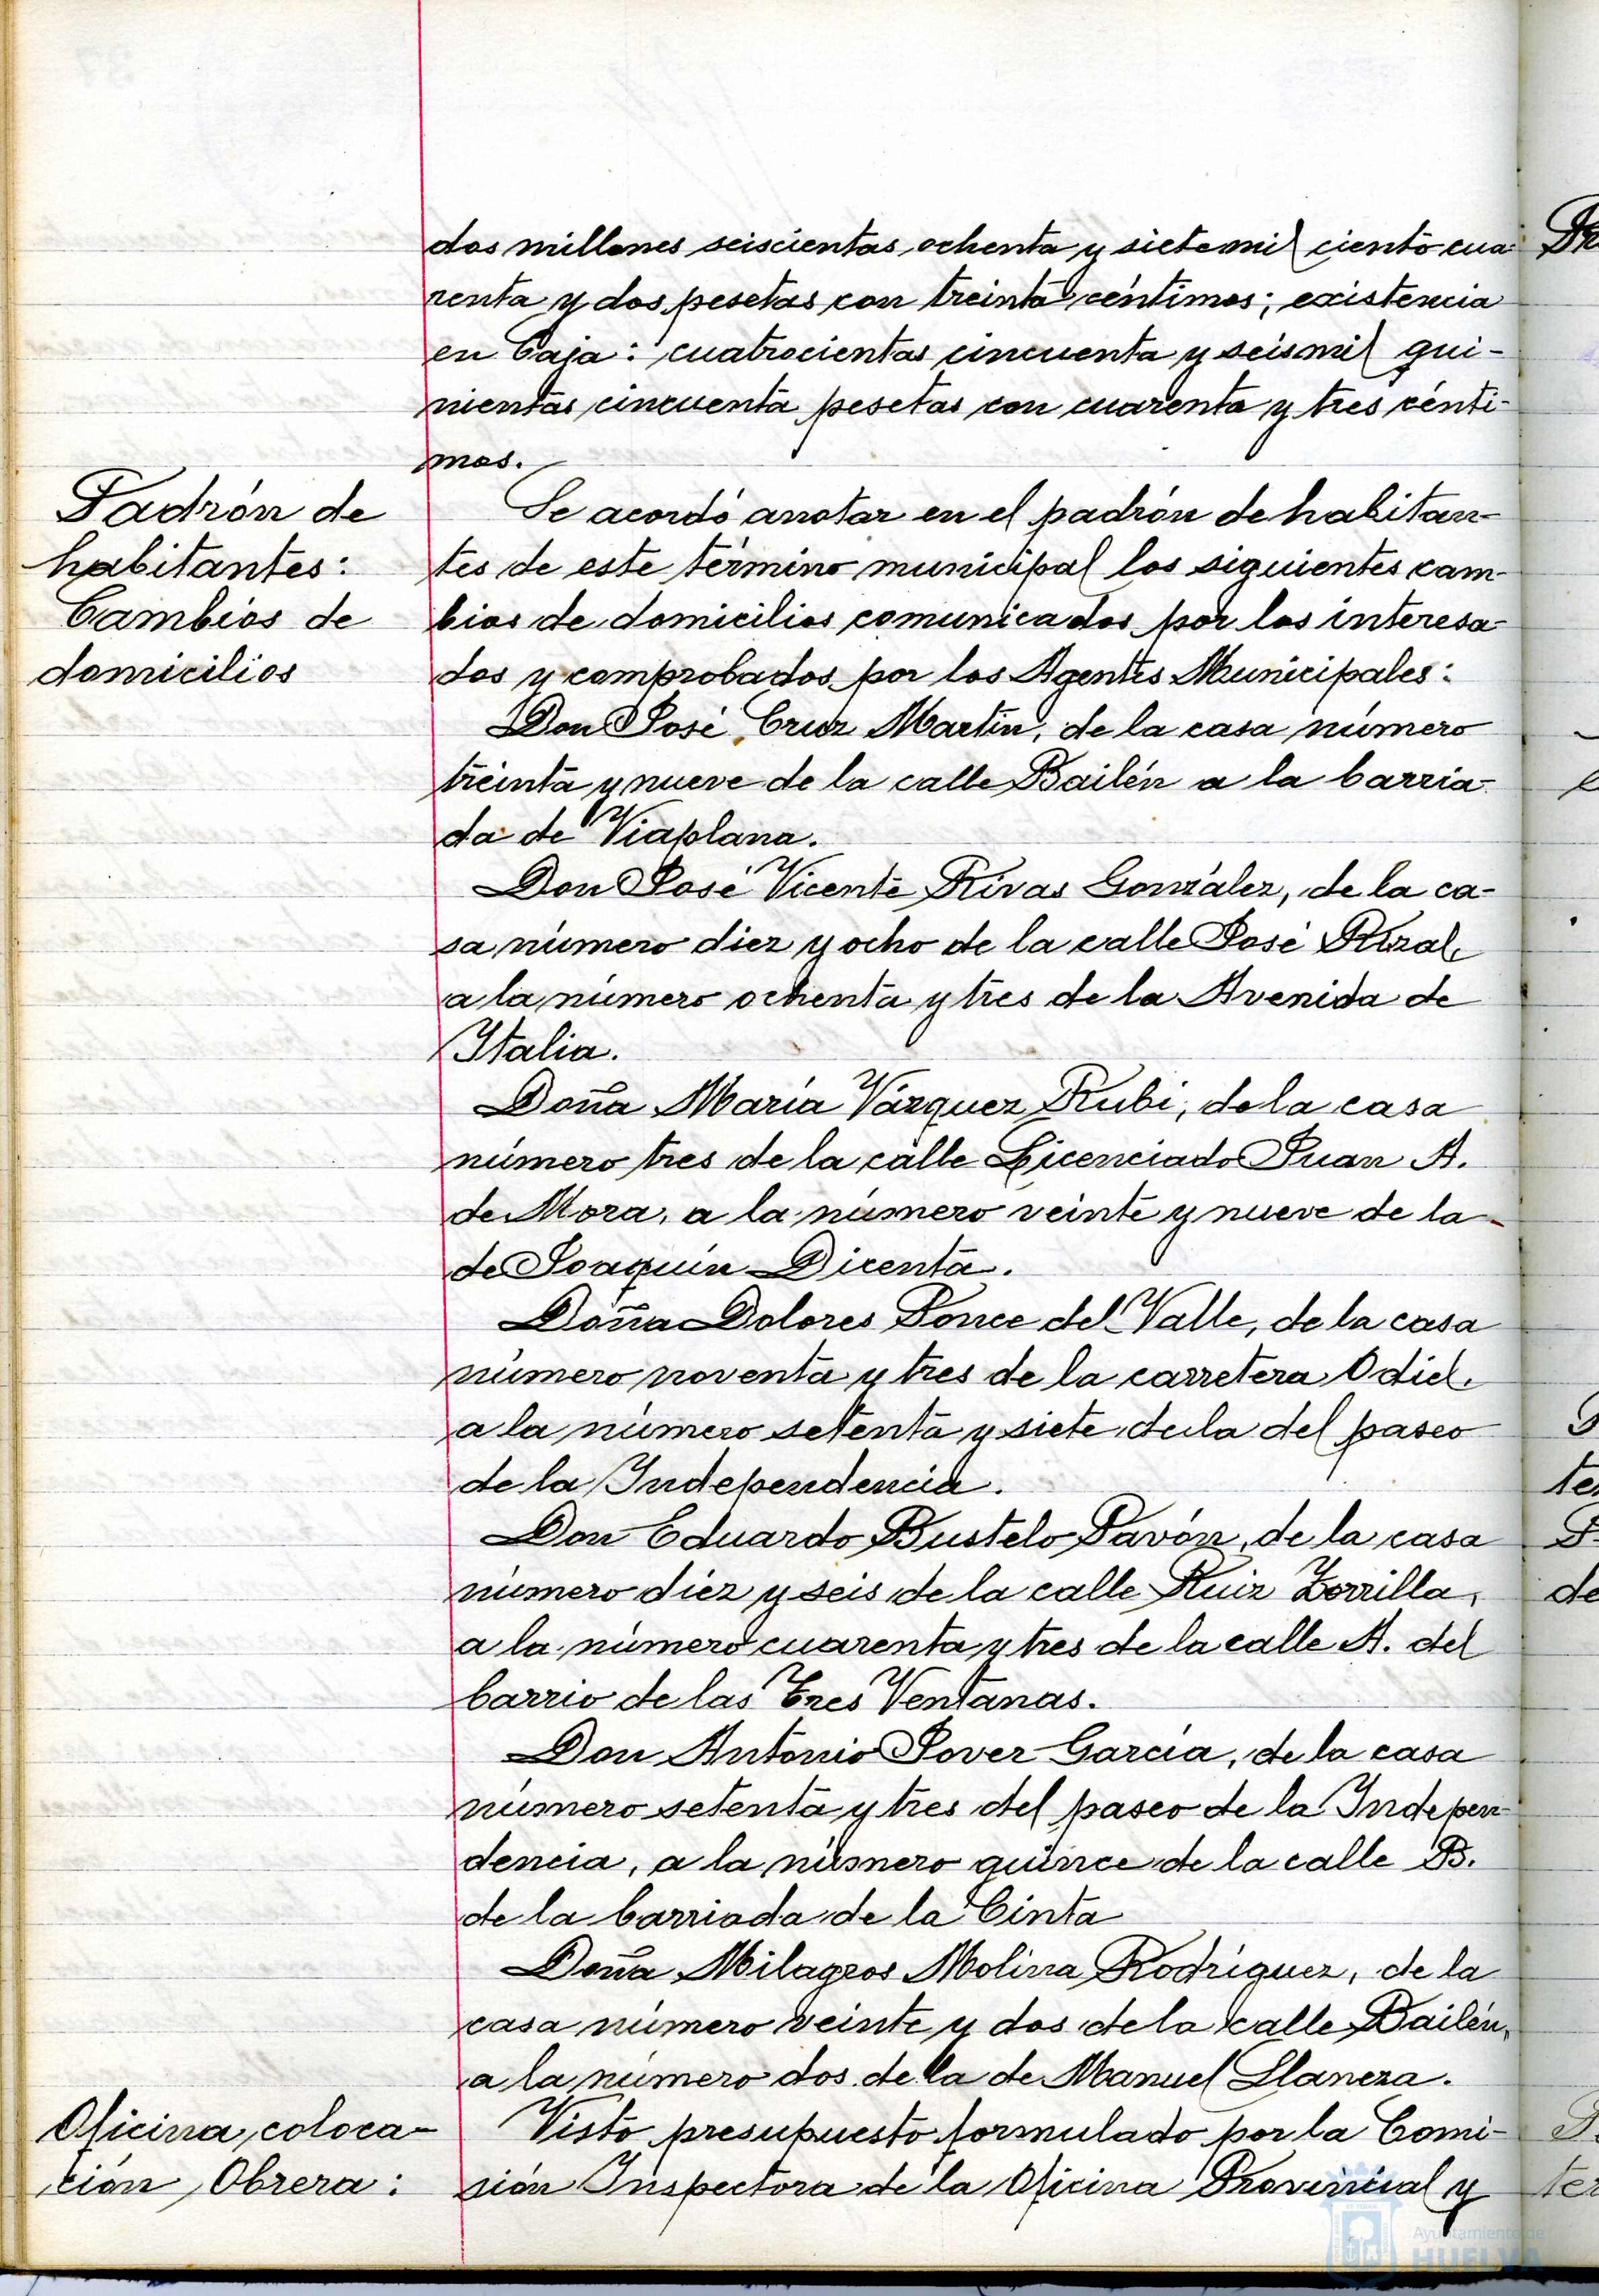 dos millones seiscientas ochenta y sietemil ciento cua-
renta y dos pesetas con treinta céntimos; existencia
en Caja: cuatrocientas cincuenta y seismil qui-
nientas cincuenta pesetas con cuarenta y tres cénti-
mos.
Padrón de
habitantes:
Cambios de
domicilios
Se acordó anotar en el padrón de habitan-
tes de este término municipal los siguientes cam-
bios de domicilios comunicados por los interesa-
dos y comprobados por los Agentes Municipales:
Don José Cruz Martín, de la casa número
treinta y nueve de la calle Bailén a la barria-
da de Viaplana.
Don José Vicente Rivas González, de la ca-
sa número diez y ocho de la calle José Rizal,
a la número ochenta y tres de la Avenida de
Italia.
Doña María Vázquez Rubi, de la casa
número tres de la calle Licenciado Juan A.
de Mora, a la número veinte y nueve de la
de Joaquín Dicenta.
Doña Dolores Ponce del Valle, de la casa
número noventa y tres de la carretera Odiel,
a la número setenta y siete de la del paseo
de la Independencia.
Don Eduardo Bustelo Pavón, de la casa
número diez y seis de la calle Ruiz Zorrilla,
a la número cuarenta y tres de la calle A. del
barrio de las Tres Ventanas.
Don Antonio Jover García, de la casa
número setenta y tres del paseo de la Indepen-
dencia, a la número quince de la calle B.
de la barriada de la Cinta
Doña Milagros Molina Rodríguez, de la
casa número veinte y dos de la calle Bailén,
a la número dos de la de Manuel Llaneza.
Oficina, coloca-
ción, Obrera:
Visto presupuesto formulado por la Comi-
sión Inspectora de la Oficina Provincial y
Ayuntamiento de
HUELVA